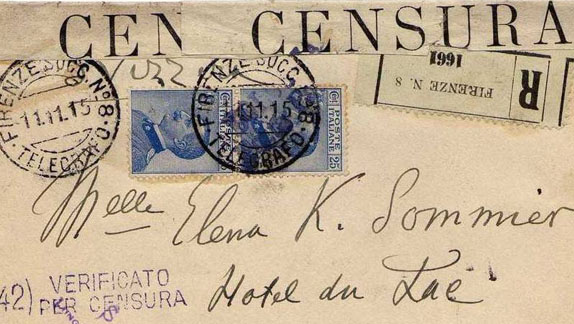 CEN CENSURA
FIRENZE SUCC. N° 8
11.11.15
TELEGRAFO
FIRENZE SUCC. N° 8
11.11.15
TELEGRAFO
POSTE
ITALIANE
25
R
FIRENZE N. 8
1661
Melle Elena K. Sommier
Hotel du Lac
42) VERIFICATO
PER CENSURA